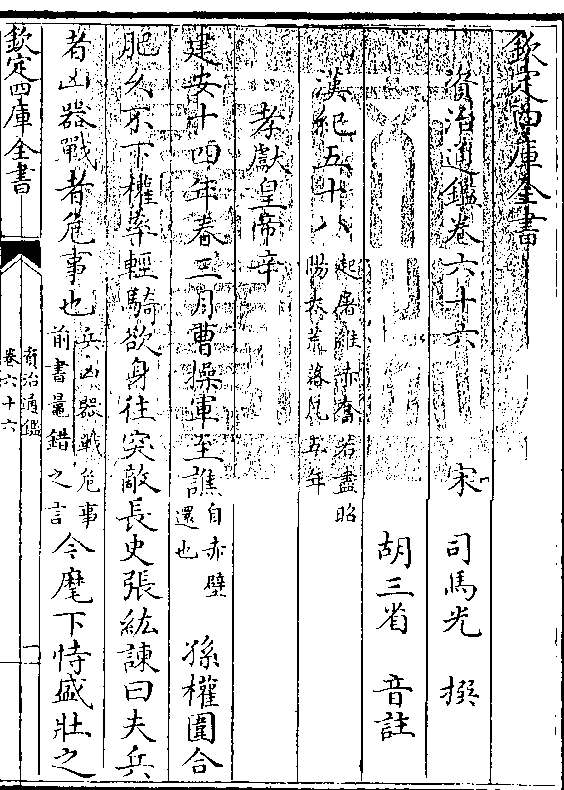 欽定四庫全書
資治通鑑卷六十六 宋 司馬光 撰
胡三省 音註
漢紀五十八 起屠維赤奮若盡昭
陽大荒落凡五年
孝獻皇帝辛
建安十四年春三月曹操軍至譙 自赤壁
還也 孫權圍合
肥久不下權率輕騎欲身往突敵長史張紘諫曰夫兵
者凶器戰者危事也 兵凶器戰危事
前書鼂錯之言 今麾下恃盛壯之
欽定四庫全書
資治通鑑
卷六十六
一